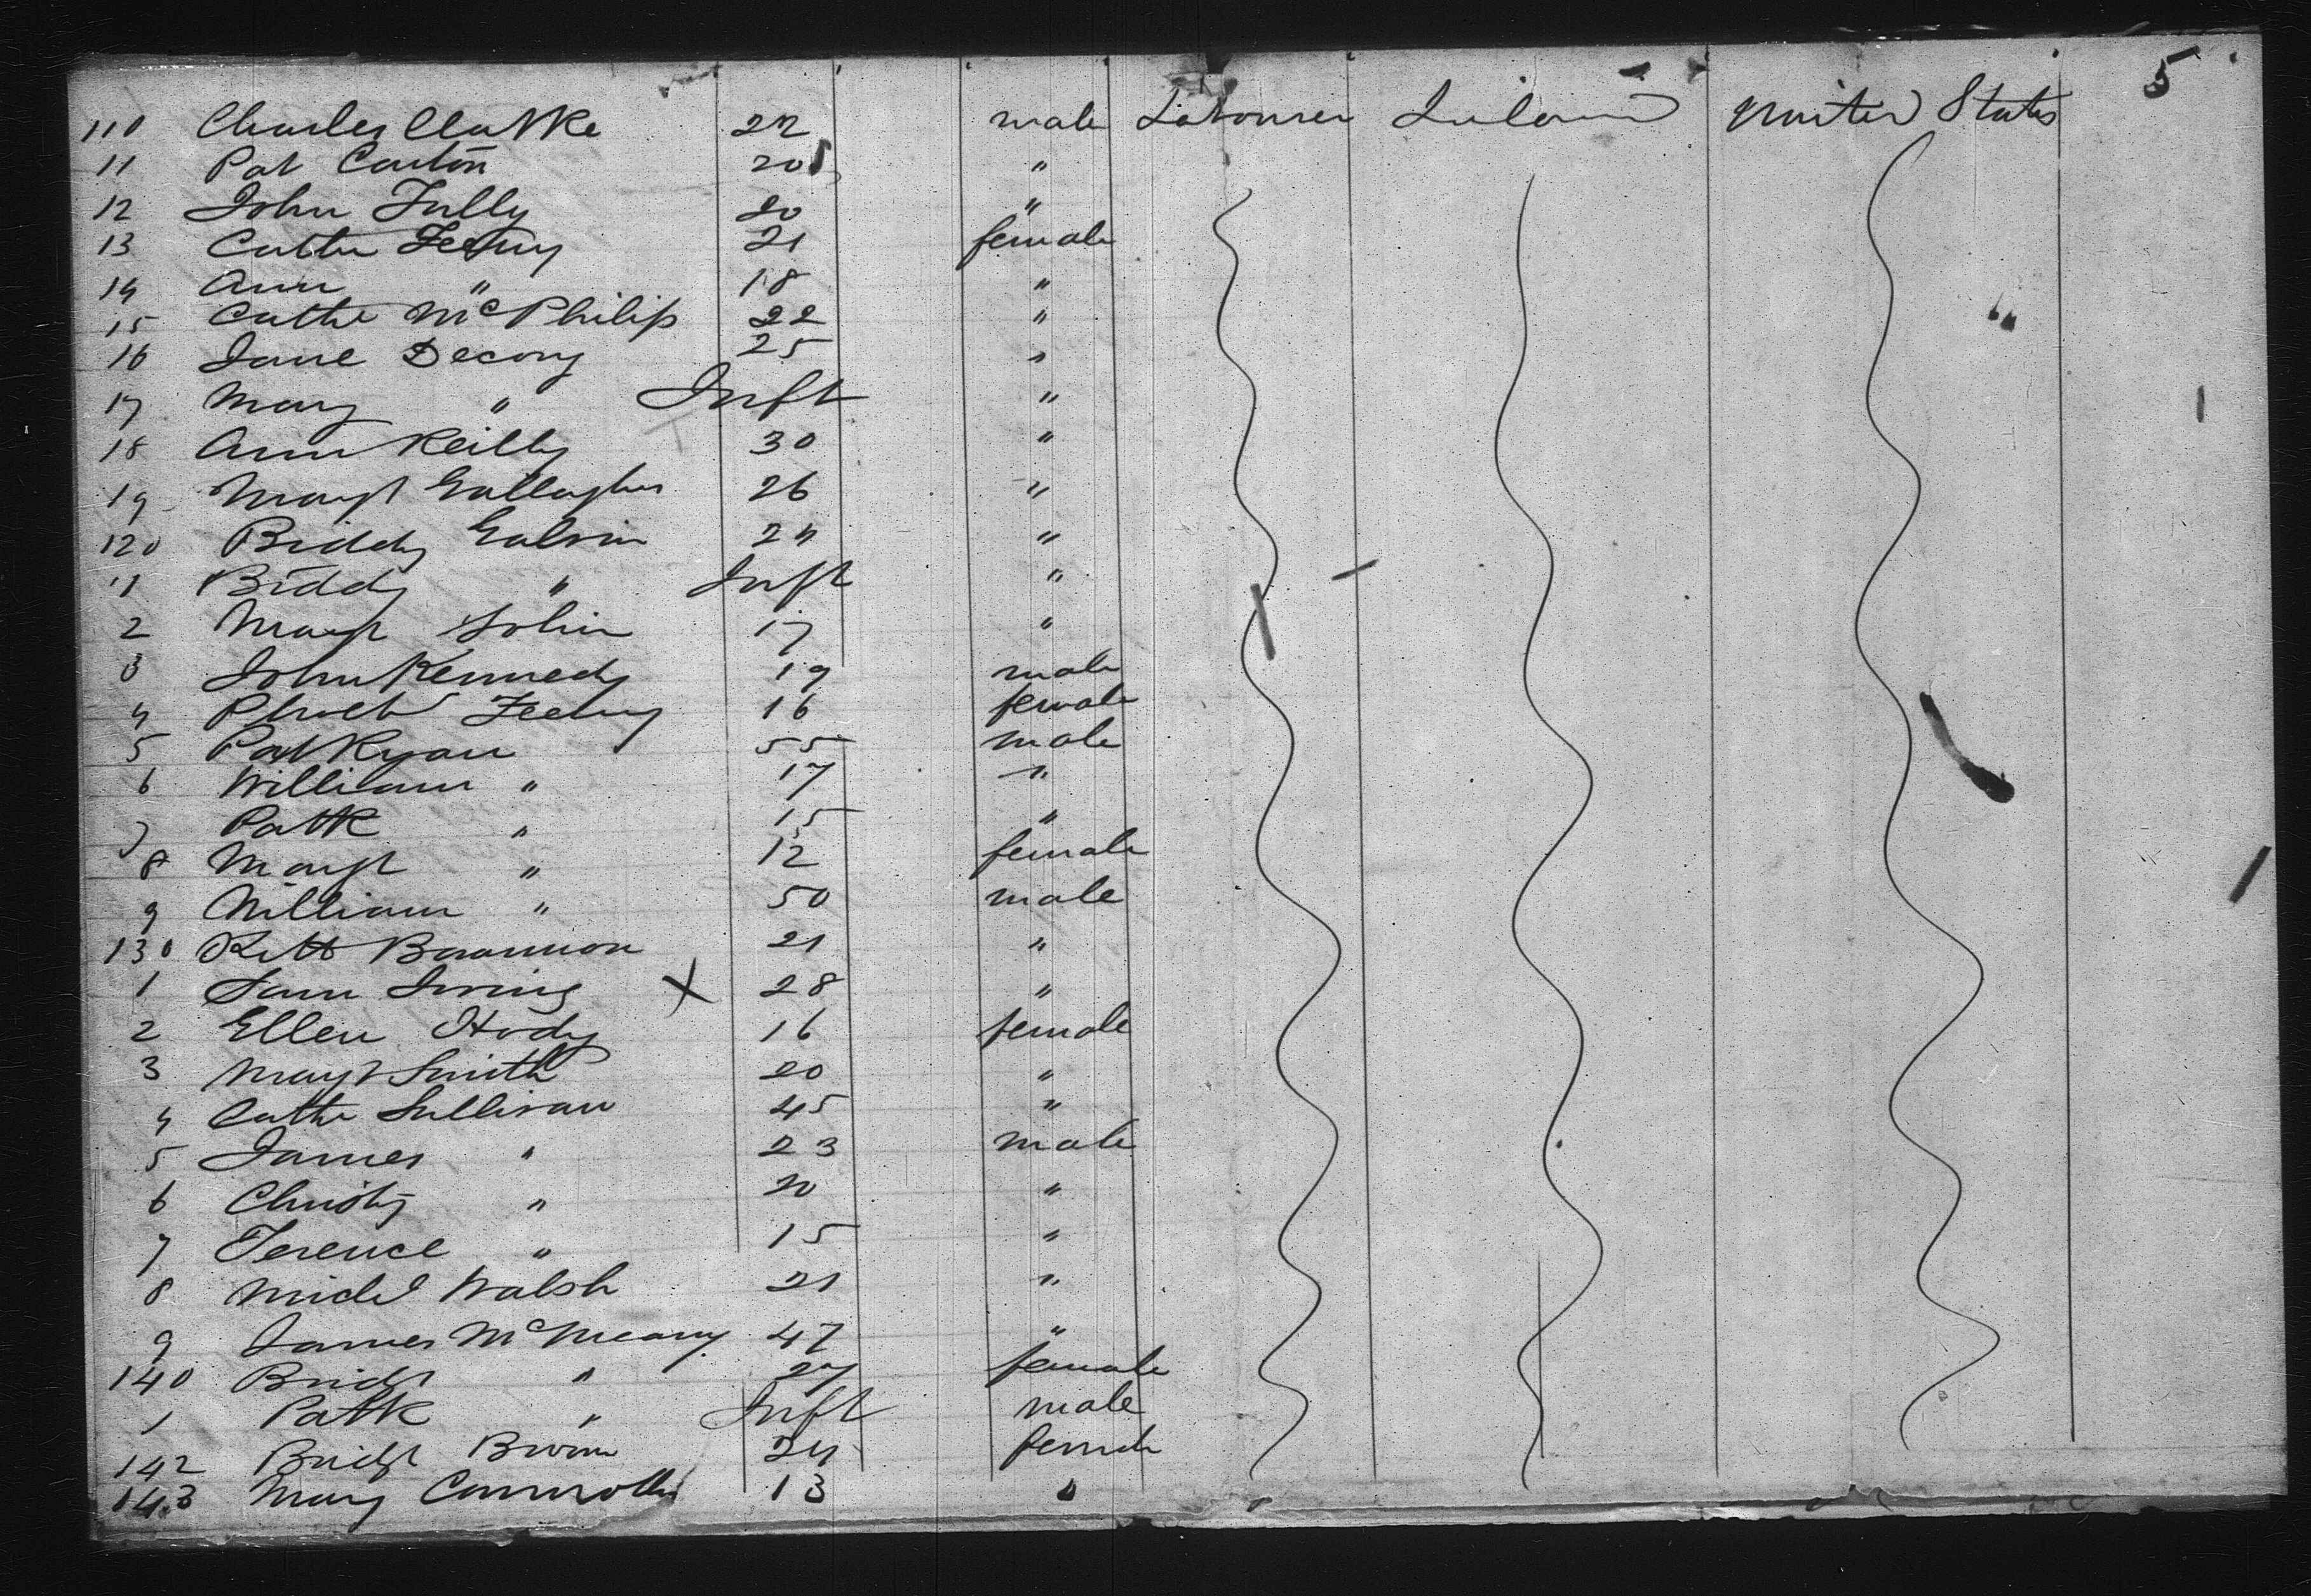 5
110 Charles Clarke 22 male Labourer Ireland United States
11 Pat Carton 20 "
12 John Tully 20 "
13 Cathe Feeny 21 female
14 Ann " 18 "
15 Cathe McPhilip 22 "
16 Jane Decony 25 "
17 Mary " Inft "
18 Ann Reilly 30 "
19 Margt Gallagher 26 "
120 Biddy Galvin 24 "
11 Biddy " Inft "
2 Margt 17 "
3 John Kennedy 19 male
4 Feeny 16 female
5 Pat Ryan 55 male
6 William " 17 "
7 Patk " 15 "
8 Margt " 12 female
9 William " 50 male
130 Kitt Bannon 21 "
1 Sam Irving X 28 "
2 Ellen Hody 16 female
3 Margt Smith 20 "
4 Cathe Sullivan 45 "
5 James " 23 male
6 Christy " 20 "
7 Terence " 15 "
8 Michl Walsh 21 "
9 James McMeany 47 "
140 Bridt " 27 female
1 Patk " Inft male
142 Bridgt 24 female
143 Mary Connolly 13 "